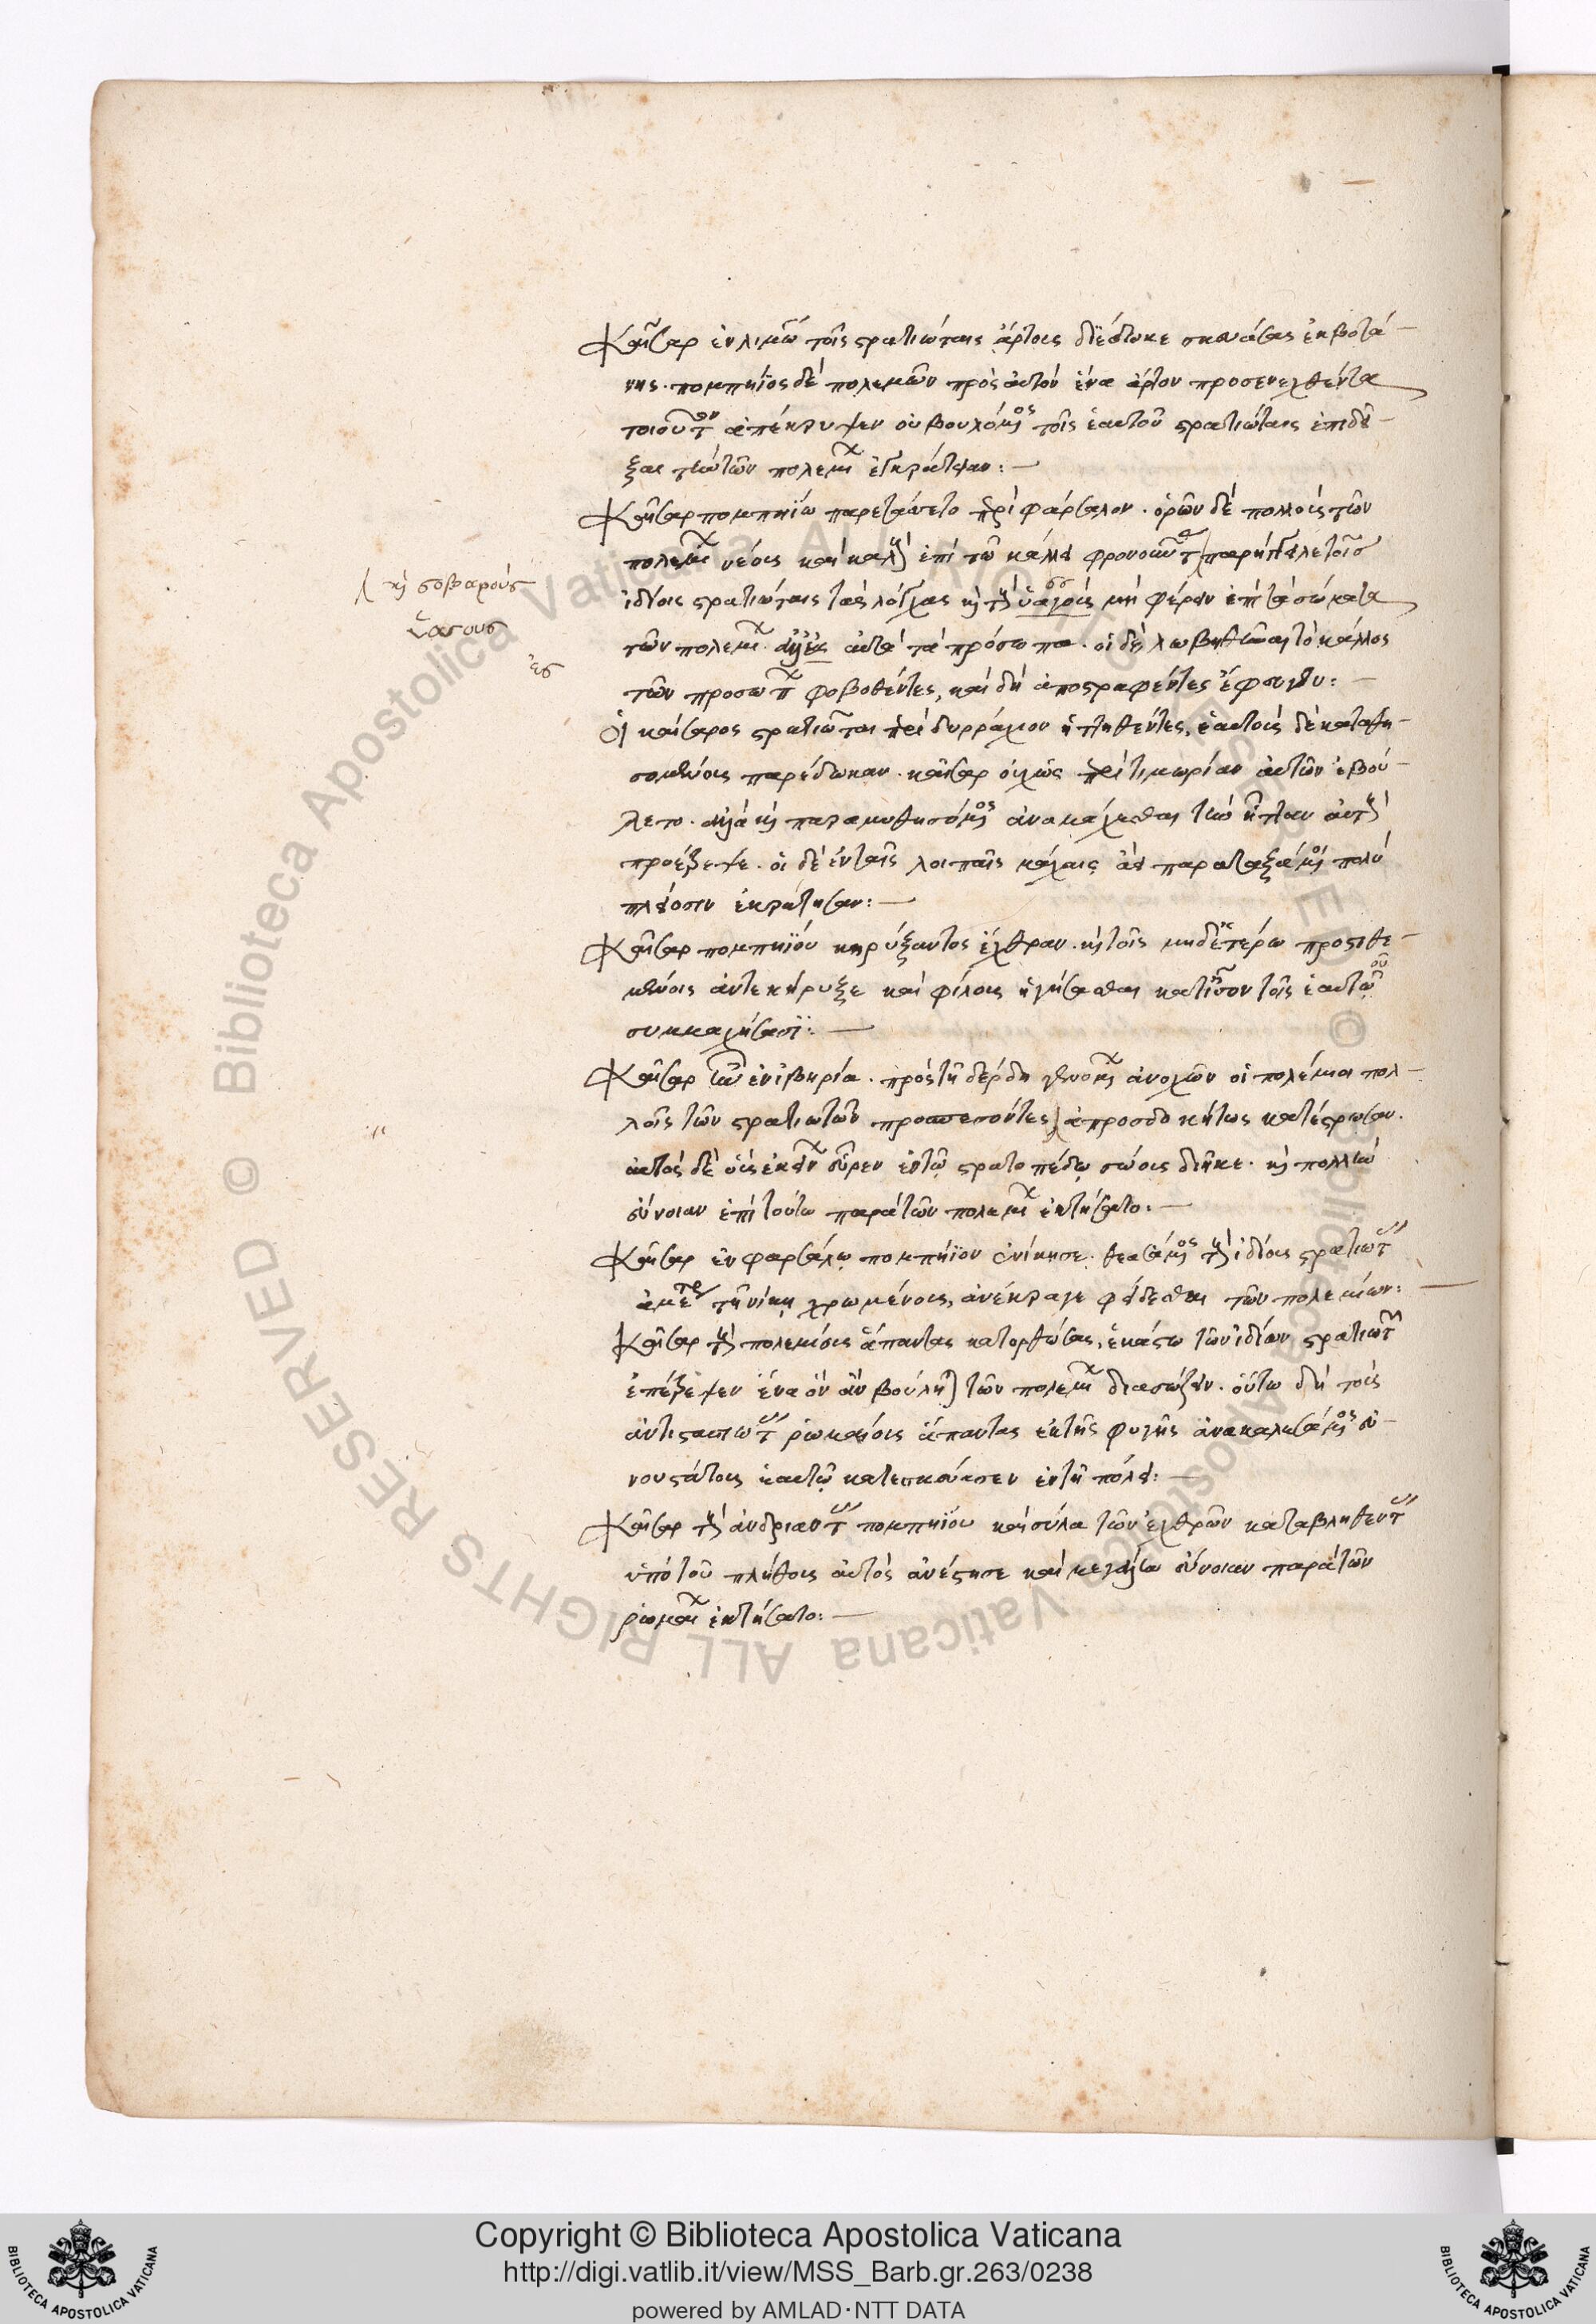 Καῖσαρ ἐν λιμῷ τοῖς στρατιώταις ἄρτους διέδωκε σκευάσας ἐκ βοτά-
νης. πομπήϊος δὲ πολεμῶν πρὸς αὐτὸν ἕνα ἄρτον προσενεχθέντα
τοιοῦτον ἀπέκρυψεν οὐ βουλόμενος τοῖς ἑαυτοῦ στρατιώταις ἐπιδεῖ-
ξαι τὴν τῶν πολεμίων ἐγκράτειαν:
Καῖσαρ πομπηΐῳ παρετάττετο περὶ φάρσαλον. ὁρῶν δὲ πολλοὺς τῶν
πολεμίων νέους καὶ καλοὺς ἐπὶ τῷ κάλλει φρονοῦντας παρήγγειλε τοῖς
ἰδίοις στρατιώταις τὰς λόγχας καὶ τοὺς ὑσσοὺς μὴ φέρειν ἐπὶ τὰ σώματα
τῶν πολεμίων ἀλλ' ἐς αὐτὰ τὰ πρόσωπα. οἱ δὲ λωβηθῆναι τὸ κάλλος
τῶν προσώπων φοβηθέντες, καὶ δὴ ἀποστραφέντες ἔφευγον:
Οἱ καίσαρος στρατιῶται περὶ δυρράχιον ἡττηθέντες, ἑαυτοὺς δεκατευθη-
σομένους παρέδωκαν. καῖσαρ οὐχ ὡς περὶ τιμωρίαν αὐτῶν ἐβού-
λετο. ἀλλὰ καὶ παραμυθησόμενος ἀναμάχεσθαι τὴν ἧτταν αὐτοὺς
προέτρεψε. οἱ δὲ ἐν ταῖς λοιπαῖς μάχαις ἀεὶ παραταξάμενοι πολὺ
πλείοσιν ἐκράτησαν:
Καῖσαρ πομπηΐου κηρύξαντος ἔχθραν. καὶ τοῖς μηδετέρῳ προστιθε-
μένοις ἀντεκήρυξε καὶ φίλους ἡγήσασθαι κατ' ἴσον τοῖς ἑαυτῷ
συμμαχήσασι:
Καῖσαρ ἐν ἰβηρίᾳ. πρὸς τῇ ἰλέρδῃ γενομένων ἀνοχῶν οἱ πολέμιοι πολ-
λοῖς τῶν στρατιωτῶν προσπεσόντες ἀπροσδοκήτως κατέστρωσαν.
αὐτὸς δὲ οὓς ἐκείνων εὗρεν ἐν τῷ στρατοπέδῳ σώους διῆκε. καὶ πολλὴν
εὔνοιαν ἐπὶ τούτῳ παρὰ τῶν πολεμίων ἐκτήσατο:
Καῖσαρ ἐν φαρσάλῳ πομπήϊον ἐνίκησε. θεασάμενος τοὺς ἰδίους στρατιώτας
ἀμέτρως τῇ νίκῃ χρωμένους, ἀνέκραγε φείδεσθαι τῶν πολεμίων:
Καῖσαρ τοὺς πολεμίους ἅπαντας κατορθώσας, ἑκάστῳ τῶν ἰδίων στρατιωτῶν
ἐπέτρεψεν ἕνα ὃν ἂν βούληται τῶν πολεμίων διασώζειν. οὕτω δὴ τοὺς
ἀντιστασιώτας ῥωμαίους ἅπαντας ἐκ τῆς φυγῆς ἀνακαλεσάμενος εὐ-
νουστάτους ἑαυτῷ κατεσκεύασεν ἐν τῇ πόλει:
Καῖσαρ τοὺς ἀνδριάντας πομπηΐου καὶ σύλα τῶν ἐχθρῶν καταβληθέντας
ὑπὸ τοῦ πλήθους αὐτὸς ἀνέστησε καὶ μεγάλην εὔνοιαν παρὰ τῶν
ῥωμαίων ἐκτήσατο:
καὶ σοβαροὺς
ἐς
Copyright © Biblioteca Apostolica Vaticana
http://digi.vatlib.it/view/MSS_Barb.gr.263/0238
powered by AMLAD·NTT DATA